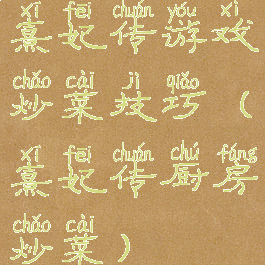 xī fēi chuán yóu xì
熹妃传游戏
chǎo cài jì qiǎo
炒菜技巧(
xī fēi chuán chú fáng
熹妃传厨房
chǎo cài
炒菜)